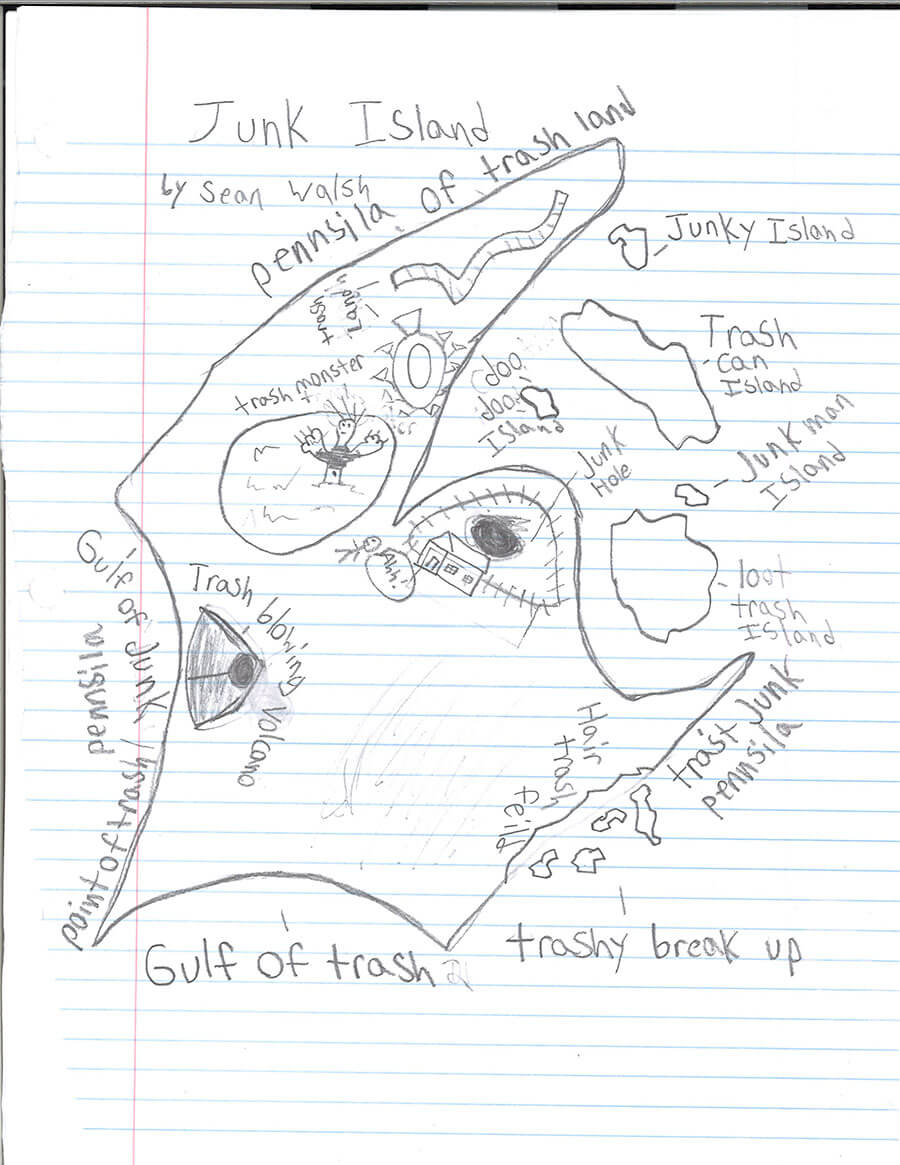 Junk Island
by Sean Walsh
pennsila of trash land
Junky Island
trash
Land
Trash
can
Island
trash monster
doo
doo
Island
Junk man
Island
Junk
Hole
Ahh!
Gulf of Junk /
Trash blowing Volcano
loot
trash
Island
point of trash
pennsila
Hair
trash
feild
trast Junk
pennsila
trashy break up
Gulf of trash